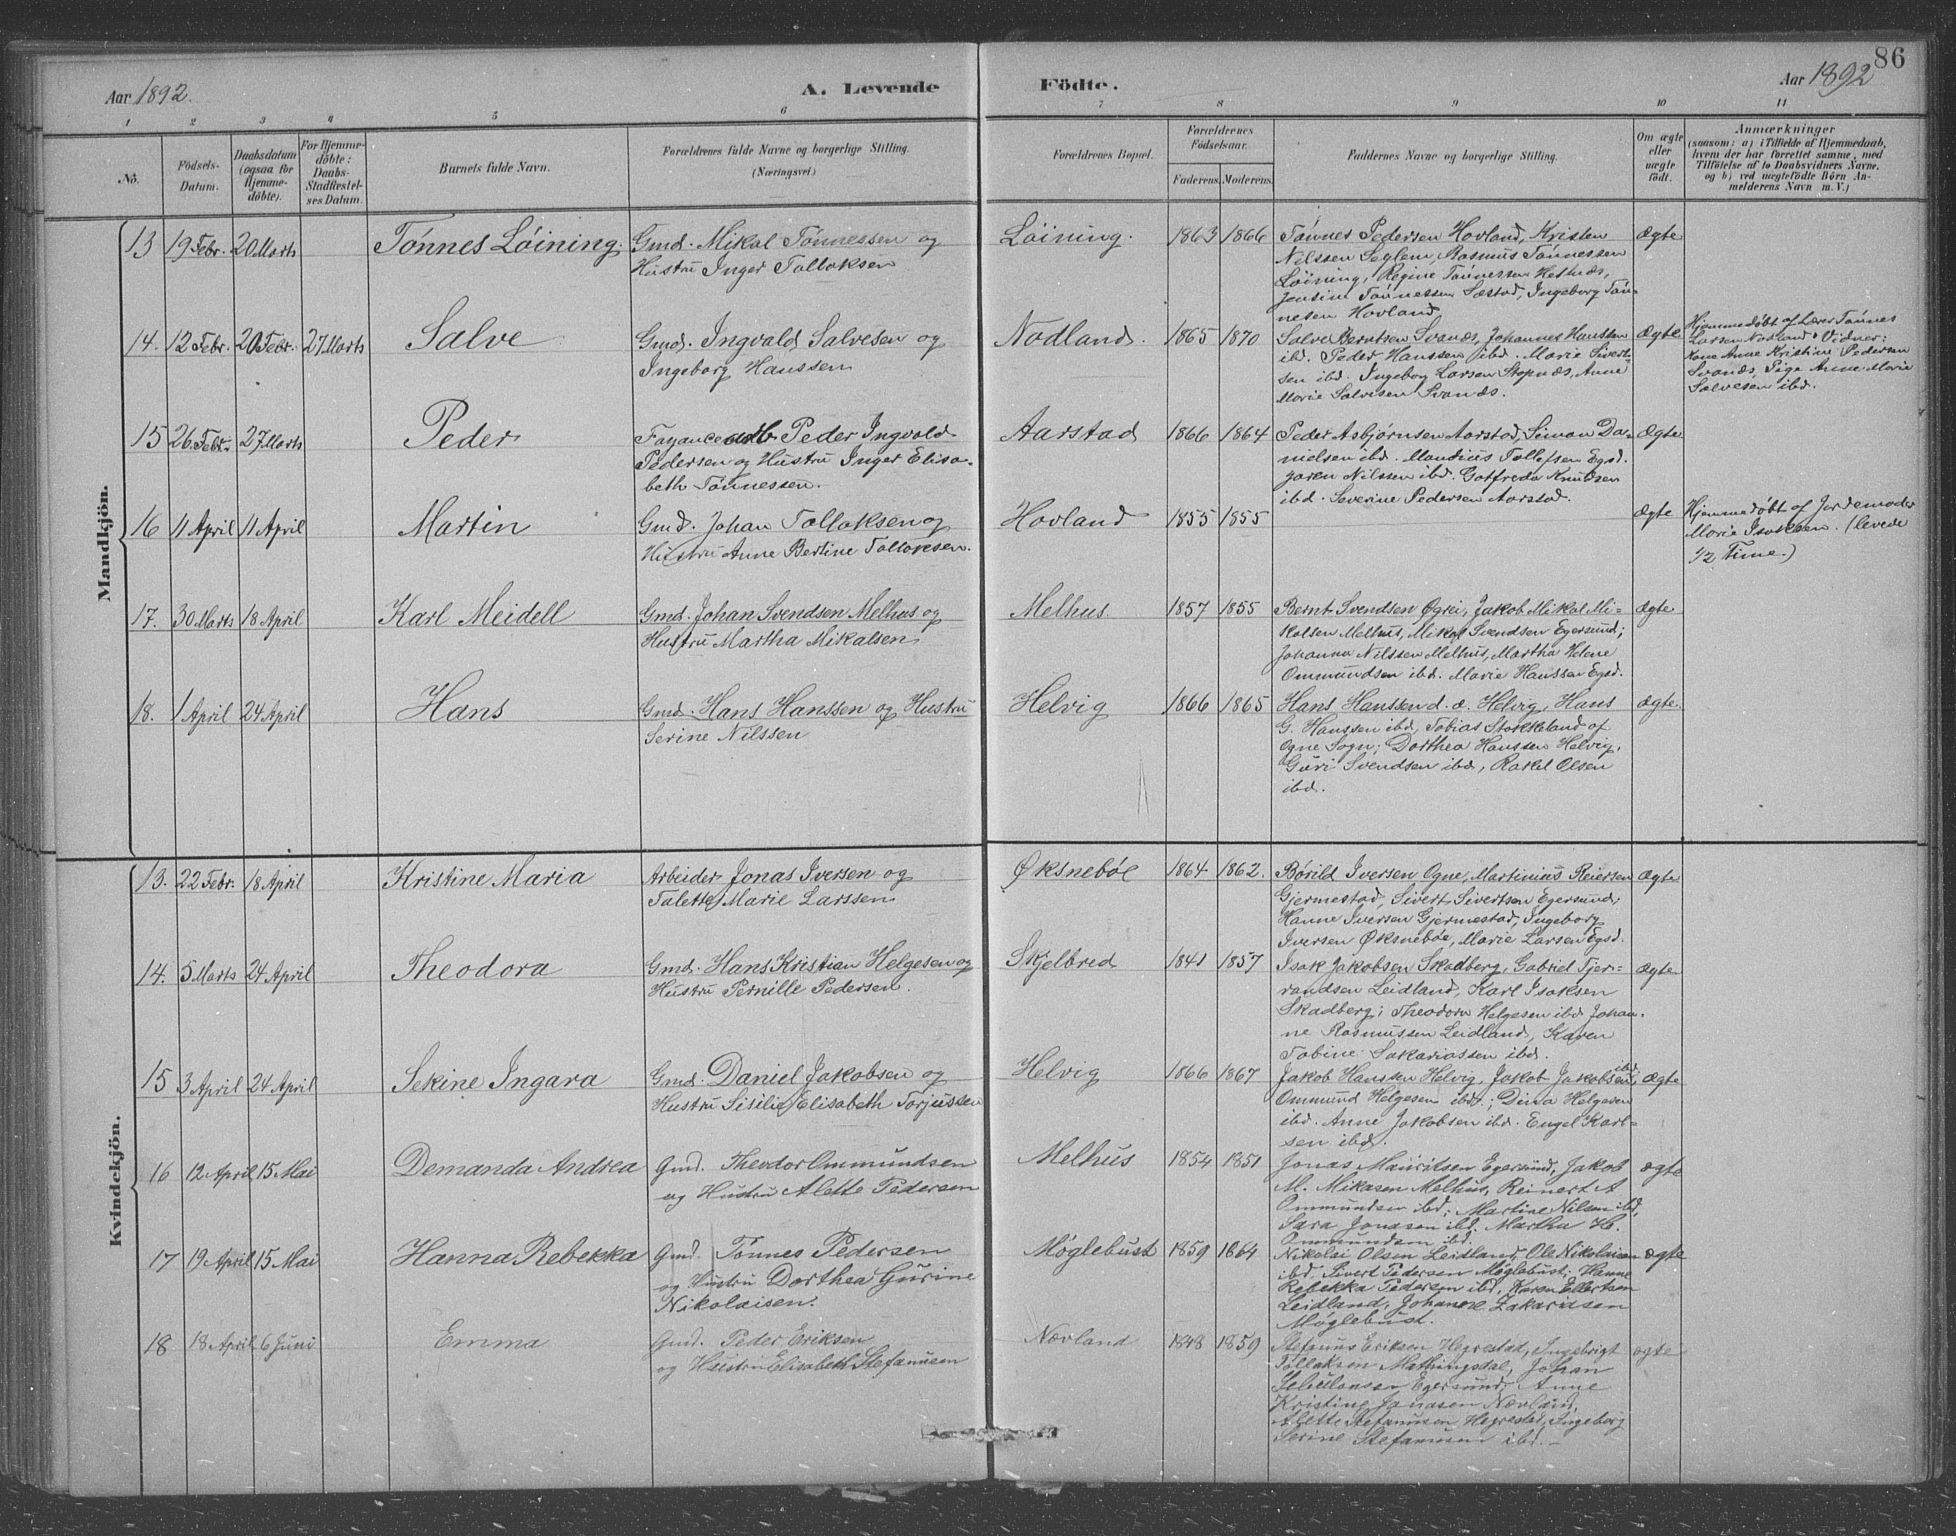 86
Aar 1892. A. Levende Födte. Aar 1892
1 2 3 4 5 6 7 8 9 10 11
No. Födsels-Datum. Daabsdatum (ogsaa for Hjemmedöbte). For Hjemmedöbte: Daabs-Stadfæstelses Datum. Barnets fulde Navn. Forældrenes fulde Navne og borgerlige Stilling. (Næringsvei) Forældrenes Bopæl. Forældrenes Födselsaar. Faderens. Moderens. Faddernes Navne og borgerlige Stilling. Om ægte eller uægte födt. Anmærkninger
(saasom: a) i Tilfælde af Hjemmedaab,
hvem der har forrettet samme, med
Tilföielse af to Daabsvidners Navne,
og b) ved uægtefödte Börn An-
melderens Navn m. V.)
Mandkjön.
13 19 Febr. 20 Marts Tönnes Löining. Gmd. Mikal Tönnessen og
Hustru Inger Tollaksen
Löining. 1863 1866 Tönnes Pedersen Hovland, Kristen
Nilssen Seglem, Rasmus Tönnessen
Löining, Regine Tönnessen Hetnæs,
Jensine Tönnessen Sæstad, Ingeborg Tön-
nesen Hovland
ægte
14. 12 Febr. 20 Febr. 27 Marts Salve Gmd. Ingvald Salvesen og
Ingeborg Hanssen
Nodland. 1865 1870 Salve Berntsen Svanæs, Johannes Hanssen
ibd. Peder Hanssen ibd. Marie Sivert-
sen ibd. Ingeborg Larsen Stapnæs, Anne
Marie Salvesen Svanæs.
ægte Hjemmedøbt af Lærer Tønnes
Larsen Nodland. Vidner:
Kone Anne Kristine Pedersen
Svanæs, Pige Anne Marie
Salvesen ibd.
15 26 Febr. 27 Marts Peder Fayancearb. Peder Ingvald
Pedersen og Hustru Inger Elisa-
beth Tönnessen.
Aarstad 1866 1864 Peder Asbjørnsen Aarstad, Simon Da-
nielsen ibd. Mandius Tollefsen Egsd.
Joren Nilssen ibd. Gotfreda Knudsen
ibd. Severine Pedersen Aarstad.
ægte
16 11 April 11 April Martin Gmd. Johan Tollaksen og
Hustru Anne Bertine Tollaksen.
Hovland 1855 1855 ægte Hjemmedøbt af Jordemoder
Marie Isaksen. (levede
1/2 Time.)
17. 30 Marts 18 April Karl Meidell Gmd. Johan Svendsen Melhus og
Hustru Martha Mikalsen.
Melhus. 1857 1855 Bernt Svendsen Øgrei, Jakob Mikal Mi-
kalsen Melhus, Mikal Svendsen Egersund;
Johanna Nilssen Melhus, Martha Helene
Ommundsen ibd. Marie Hanssen Egsd.
ægte
18. 1 April 24 April Hans Gmd. Hans Hanssen og Hustru
Serine Nilssen
Helvig 1866 1865 Hans Hanssen d. æ. Helvig, Hans
G. Hanssen ibd, Tobias Stokkeland af
Ogne Sogn; Dorthea Hanssen Helvig,
Guri Svendsen ibd, Rakel Olsen
ibd.
ægte.
Kvindekjön.
13. 22 Febr. 18 April Kristine Maria Arbeider Jonas Iversen og
Talette Marie Larssen
Øksnebøe 1864 1862. Børild Iversen Ogne, Martinius Reiersen
Gjermestad, Sivert Sivertsen Egersund;
Hanne Iversen Gjermestad, Ingeborg
Iversen Øksnebøe, Marie Larsen Egsd.
ægte
14. 5 Marts 24 April Theodora Gmd. Hans Kristian Helgesen og
Hustru Pernille Pedersen.
Skjelbred 1841 1857 Isak Jakobsen Skadberg, Gabriel Tjer-
randsen Leidland, Karl Isaksen
Skadberg; Theodora Helgesen ibd Johan-
ne Rasmussen Leidland, Karen
Tobine Sakariassen ibd.
ægte
15 3 April 24 April Sekine Ingara Gmd. Daniel Jakobsen og
Hustru Sisilie Elisabeth Torjussen
Helvig 1866 1867 Jakob Hanssen Helvig, Jakob Jakobsen ibd;
Ommund Helgesen ibd.; Dina Helgesen
ibd. Anne Jakobsen ibd. Engel Karl-
sen ibd.
ægte
16 12 April 15 Mai Demanda Andrea Gmd. Theodor Ommundsen
og Hustru Alette Pedersen
Melhus 1854 1851 Jonas Mauritsen Egersund, Jakob
M. Mikasen Melhus, Reinert A
Ommundsen ibd; Martine Nilsen ibd,
Sara Jonasen ibd. Martha H.
Ommundsen ibd.
ægte
17 19 April 15 Mai Hanna Rebekka Gmd. Tönnes Pedersen
og Hustru Dorthea Gurine
Nikolaisen.
Møglebust 1859 1864 Nikolai Olsen Leidland, Ole Nikolaisen
ibd, Sivert Pedersen Møglebust; Hanne
Rebekka Pedersen ibd, Karen Ellertsen
Leidland, Johanne Zakariasen
Møglebust.
ægte
18 18 April 6 Juni Emma Gmd. Peder Eriksen
og Hustru Elisabeth Stefanusen
Nævland 1848 1859 Stefanus Eriksen Hegrestad, Ingebrigt
Tollaksen Mathingsdal, Johan
Egersund, Anne
Kristine Jonasen Nævland,
Alette Stefanusen Hegrestad, Ingeborg
Serine Stefanusen ibd.
ægte